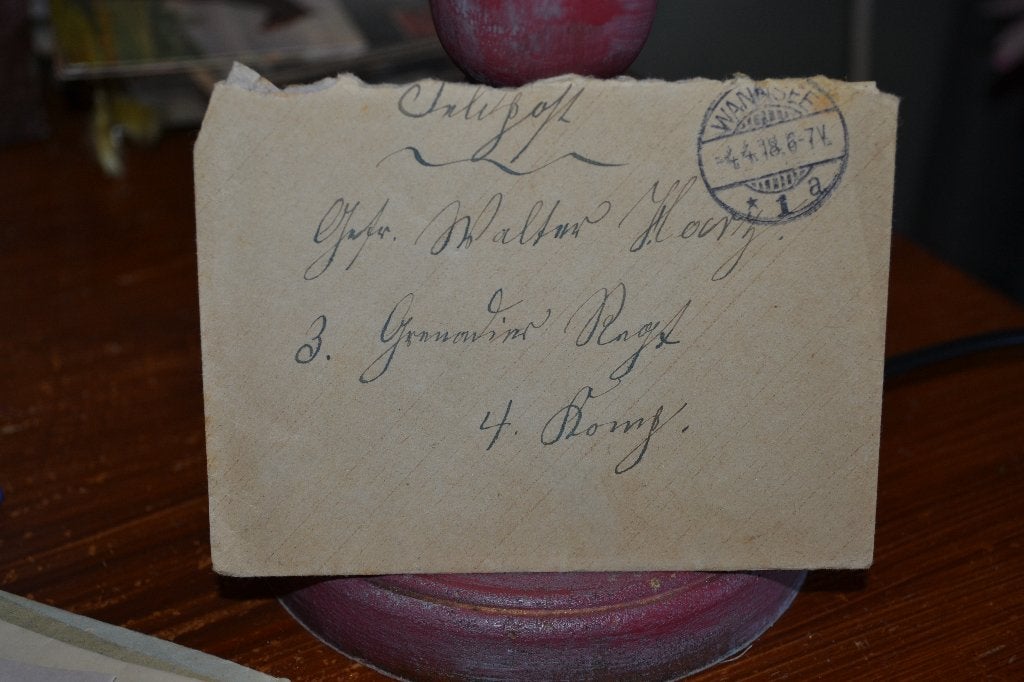 Feldpost
WANNSEE
-4.4.18.6-7V.
* 1 a
Gefr. Walter
3. Grenadier Regt
4. Komp.